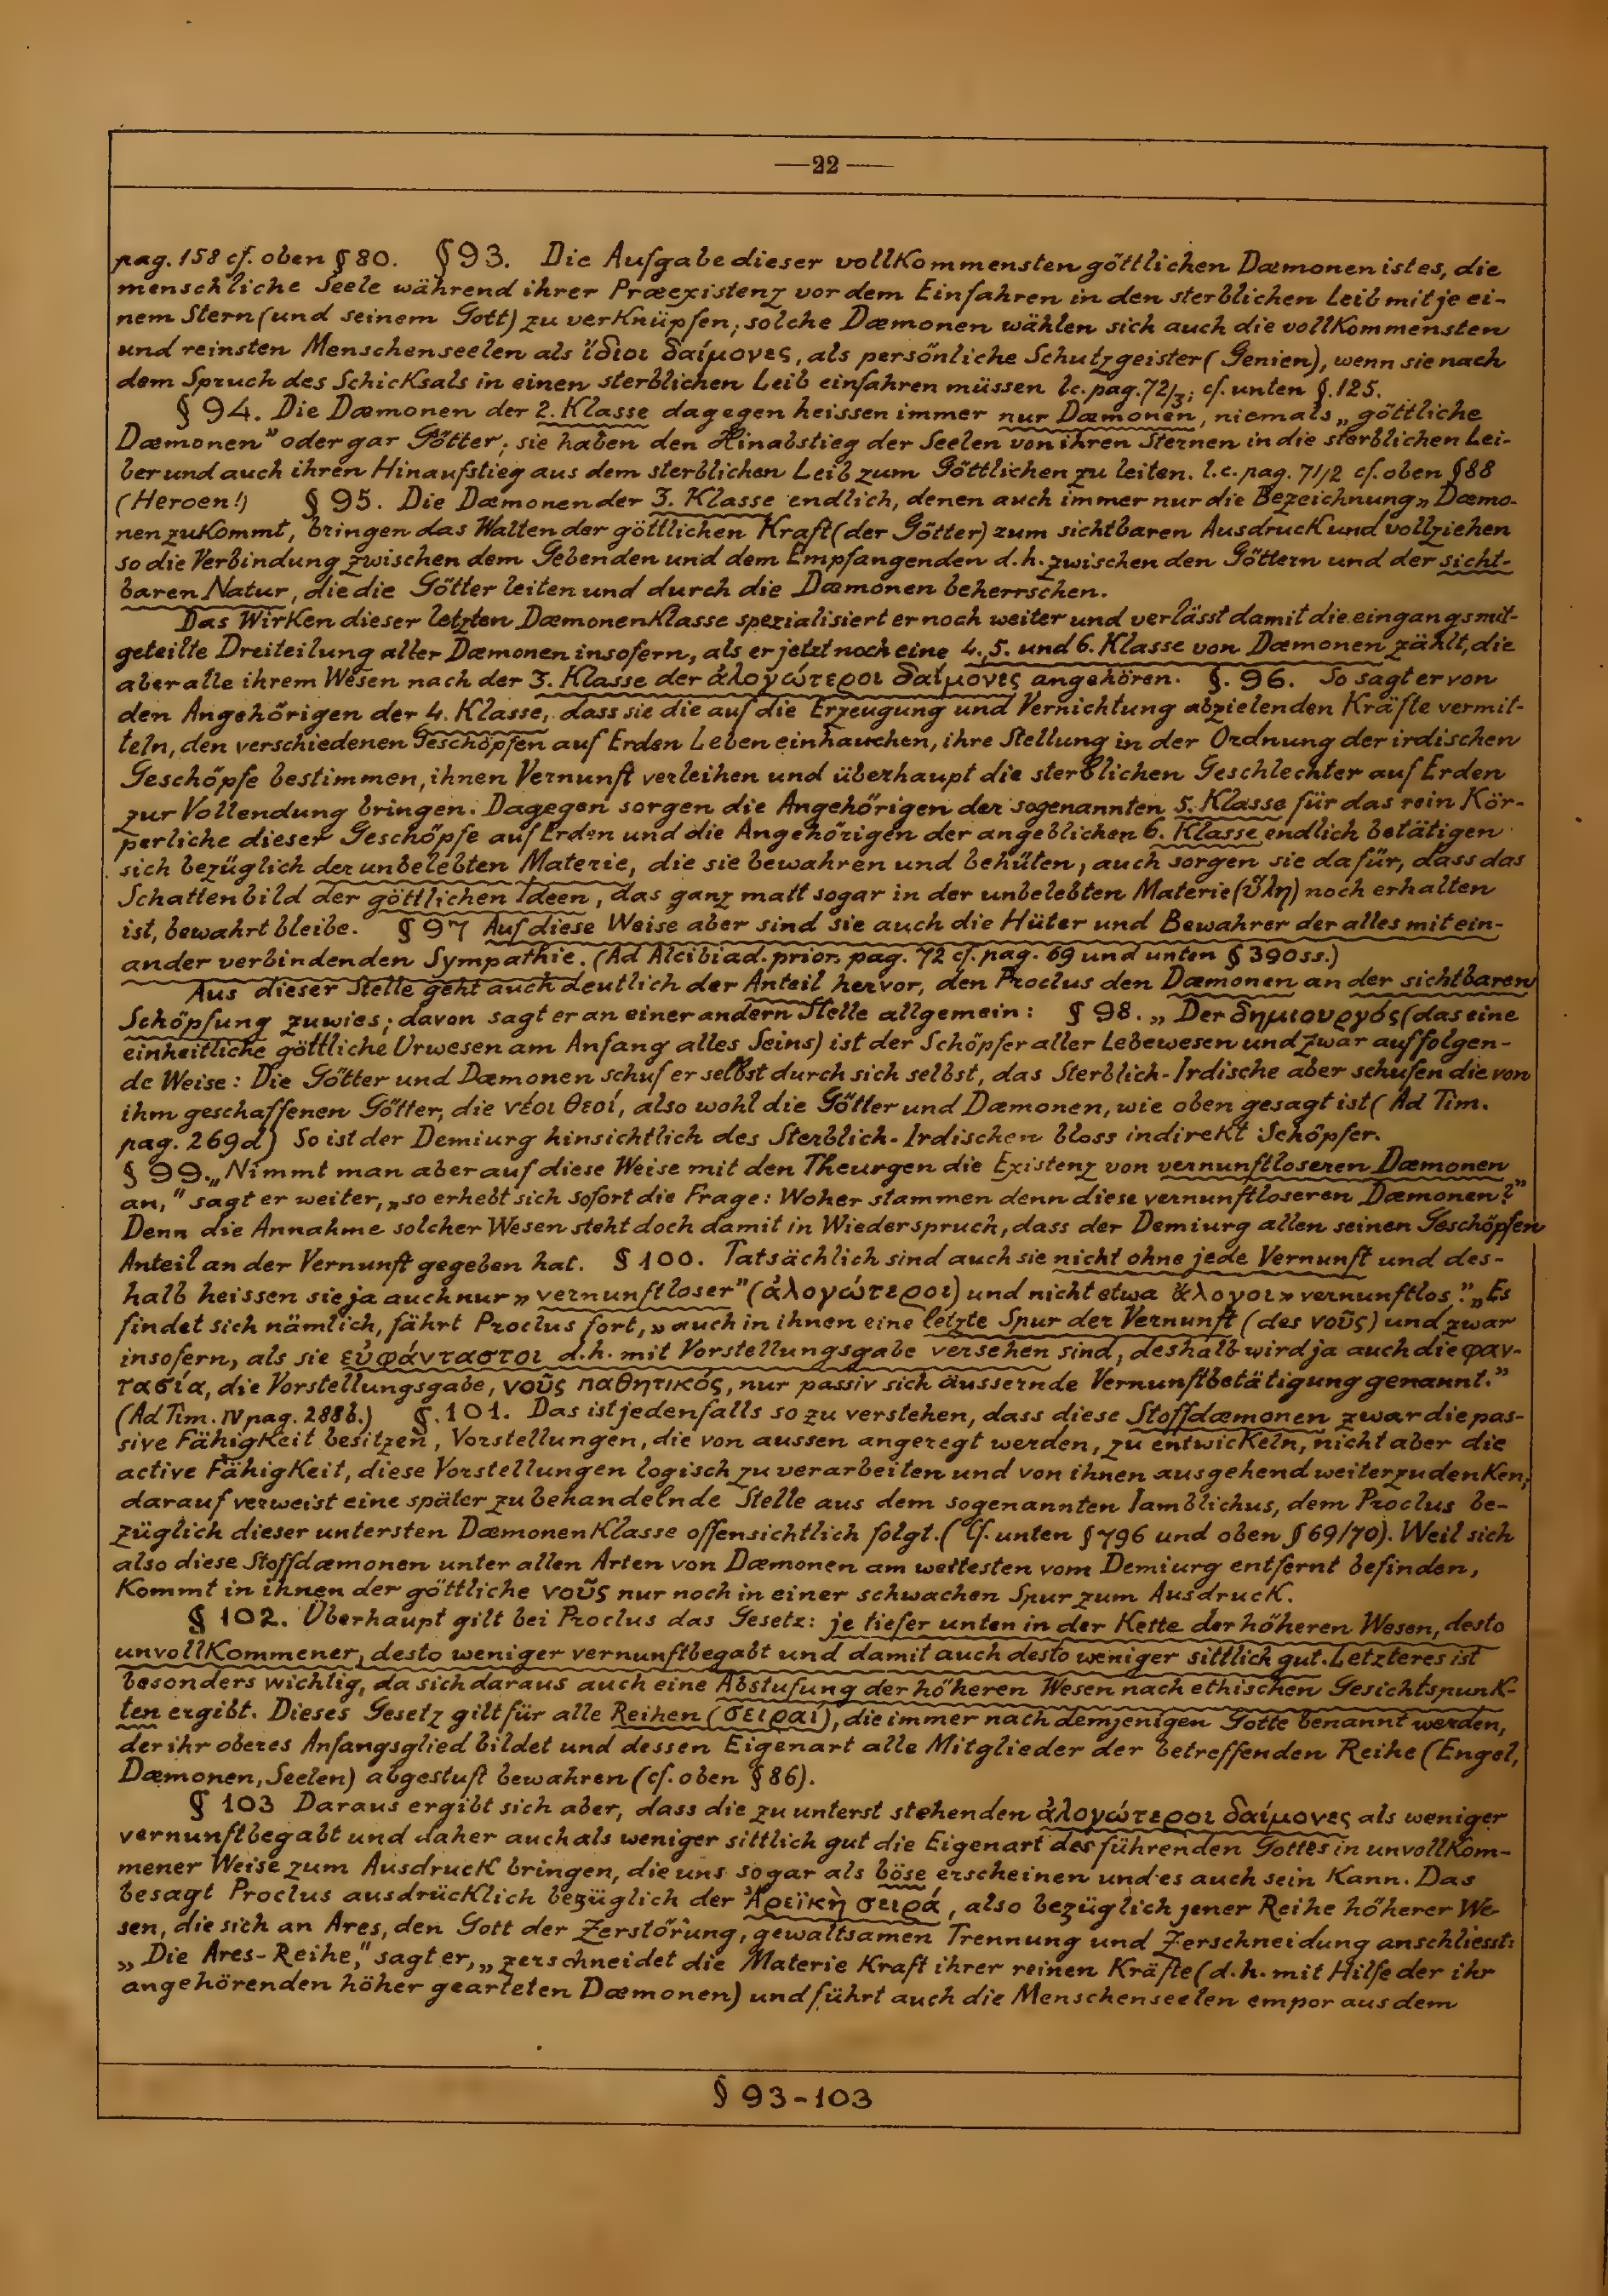 —22—
pag. 158 cf. oben § 80. § 93. Die Aufgabe dieser vollkommensten göttlichen Dæmonen ist es, die
menschliche Seele während ihrer Præexistenz vor dem Einfahren in den sterblichen Leib mit je ei-
nem Stern (und seinem Gott) zu verknüpfen; solche Dæmonen wählen sich auch die vollkommensten
und reinsten Menschenseelen als ἴδιοι δαίμονες, als persönliche Schutzgeister (Genien), wenn sie nach
dem Spruch des Schicksals in einen sterblichen Leib einfahren müssen lc. pag. 72/3; cf. unten §. 125.
§ 94. Die Dæmonen der 2. Klasse dagegen heissen immer nur Dæmonen, niemals „göttliche
Dæmonen” oder gar Götter; sie haben den Hinabstieg der Seelen von ihren Sternen in die sterblichen Lei-
ber und auch ihren Hinaufstieg aus dem sterblichen Leib zum Göttlichen zu leiten. l.c. pag. 71/2 cf. oben § 88
(Heroen!) § 95. Die Dæmonen der 3. Klasse endlich, denen auch immer nur die Bezeichnung „Dæmo-
nen zukommt, bringen das Walten der göttlichen Kraft (der Götter) zum sichtbaren Ausdruck und vollziehen
so die Verbindung zwischen dem Gebenden und dem Empfangenden d.h. zwischen den Göttern und der sicht-
baren Natur, die die Götter leiten und durch die Dæmonen beherrschen.
Das Wirken dieser letzten Dæmonenklasse spezialisiert er noch weiter und verlässt damit die eingangs mit-
geteilte Dreiteilung aller Dæmonen insofern, als er jetzt noch eine 4., 5. und 6. Klasse von Dæmonen zählt, die
aber alle ihrem Wesen nach der 3. Klasse der ἀλογώτεροι δαίμονες angehören. §. 96. So sagt er von
den Angehörigen der 4. Klasse, dass sie die auf die Erzeugung und Vernichtung abzielenden Kräfte vermit-
teln, den verschiedenen Geschöpfen auf Erden Leben einhauchen, ihre Stellung in der Ordnung der irdischen
Geschöpfe bestimmen, ihnen Vernunft verleihen und überhaupt die sterblichen Geschlechter auf Erden
zur Vollendung bringen. Dagegen sorgen die Angehörigen der sogenannten 5. Klasse für das rein Kör-
perliche dieser Geschöpfe auf Erden und die Angehörigen der angeblichen 6. Klasse endlich betätigen
sich bezüglich der unbelebten Materie, die sie bewahren und behüten, auch sorgen sie dafür, dass das
Schattenbild der göttlichen Ideen, das ganz matt sogar in der unbelebten Materie (ὕλη) noch erhalten
ist, bewahrt bleibe. § 97 Auf diese Weise aber sind sie auch die Hüter und Bewahrer der alles mitein-
ander verbindenden Sympathie. (Ad Alcibiad. prior. pag. 72 cf. pag. 69 und unten § 390ss.)
Aus dieser Stelle geht auch deutlich der Anteil hervor, den Proclus den Dæmonen an der sichtbaren
Schöpfung zuwies; davon sagt er an einer andern Stelle allgemein: § 98. „Der δημιουργός (das eine
einheitliche göttliche Urwesen am Anfang alles Seins) ist der Schöpfer aller Lebewesen und zwar auf folgen-
de Weise: Die Götter und Dæmonen schuf er selbst durch sich selbst, das Sterblich-Irdische aber schufen die von
ihm geschaffenen Götter, die νέοι θεοί, also wohl die Götter und Dæmonen, wie oben gesagt ist (Ad Tim.
pag. 269d) So ist der Demiurg hinsichtlich des Sterblich-Irdischen bloss indirekt Schöpfer.
§ 99. „Nimmt man aber auf diese Weise mit den Theurgen die Existenz von vernunftloseren Dæmonen
an,” sagt er weiter, „so erhebt sich sofort die Frage: Woher stammen denn diese vernunftloseren Dæmonen?”
Denn die Annahme solcher Wesen steht doch damit in Wiederspruch, dass der Demiurg allen seinen Geschöpfen
Anteil an der Vernunft gegeben hat. § 100. Tatsächlich sind auch sie nicht ohne jede Vernunft und des-
halb heissen sie ja auch nur „vernunftloser” (ἀλογώτεροι) und nicht etwa ἄλογοι „vernunftlos”. „Es
findet sich nämlich, fährt Proclus fort, „auch in ihnen eine letzte Spur der Vernunft (des νοῦς) und zwar
insofern, als sie εὐφάνταστοι d.h. mit Vorstellungsgabe versehen sind, deshalb wird ja auch die φαν-
τασία, die Vorstellungsgabe, νοῦς παθητικός, nur passiv sich äussernde Vernunftbetätigung genannt.”
(Ad Tim. IV pag. 288b.) §. 101. Das ist jedenfalls so zu verstehen, dass diese Stoffdæmonen zwar die pas-
sive Fähigkeit besitzen, Vorstellungen, die von aussen angeregt werden, zu entwickeln, nicht aber die
active Fähigkeit, diese Vorstellungen logisch zu verarbeiten und von ihnen ausgehend weiterzudenken;
darauf verweist eine später zu behandelnde Stelle aus dem sogenannten Iamblichus, dem Proclus be-
züglich dieser untersten Dæmonenklasse offensichtlich folgt. (Cf. unten § 796 und oben § 69/70). Weil sich
also diese Stoffdæmonen unter allen Arten von Dæmonen am weitesten vom Demiurg entfernt befinden,
kommt in ihnen der göttliche νοῦς nur noch in einer schwachen Spur zum Ausdruck.
§ 102. Überhaupt gilt bei Proclus das Gesetz: je tiefer unten in der Kette der höheren Wesen, desto
unvollkommener, desto weniger vernunftbegabt und damit auch desto weniger sittlich gut. Letzteres ist
besonders wichtig, da sich daraus auch eine Abstufung der höheren Wesen nach ethischen Gesichtspunk-
ten ergibt. Dieses Gesetz gilt für alle Reihen (σειραί), die immer nach demjenigen Gotte benannt werden,
der ihr oberes Anfangsglied bildet und dessen Eigenart alle Mitglieder der betreffenden Reihe (Engel,
Dæmonen, Seelen) abgestuft bewahren (cf. oben § 86).
§ 103 Daraus ergibt sich aber, dass die zu unterst stehenden ἀλογώτεροι δαίμονες als weniger
vernunftbegabt und daher auch als weniger sittlich gut die Eigenart des führenden Gottes in unvollkom-
mener Weise zum Ausdruck bringen, die uns sogar als böse erscheinen und es auch sein kann. Das
besagt Proclus ausdrücklich bezüglich der Ἀρεϊκὴ σειρά, also bezüglich jener Reihe höherer We-
sen, die sich an Ares, den Gott der Zerstörung, gewaltsamen Trennung und Zerschneidung anschliesst:
„Die Ares-Reihe,” sagt er, „zerschneidet die Materie kraft ihrer reinen Kräfte (d.h. mit Hilfe der ihr
angehörenden höher gearteten Dæmonen) und führt auch die Menschenseelen empor aus dem
§ 93-103